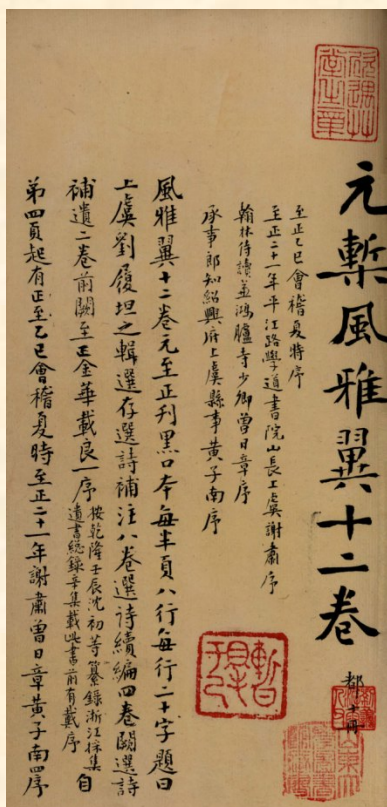 元槧風雅翼十二卷
至正乙巳會稽夏時序
至正二十一年平江路學道書院山長上虞謝肅序
翰林待讀並鴻臚寺少卿曾日章序
承事郎知紹興府上虞縣事黃子南序
風雅翼十二卷元至正刊黑口本每半頁八行每行二十字題曰
上虞劉履坦之輯選存選詩補注八卷選詩續編四卷闕選詩
補遺二卷前闕至正金華戴良一序按乾隆壬辰沈初等纂錄浙江採集
遺書總錄辛集載此書前有戴序自
第四頁起有正至乙巳會稽夏時至正二十一年謝肅曾日章黃子南四序
暫得于己